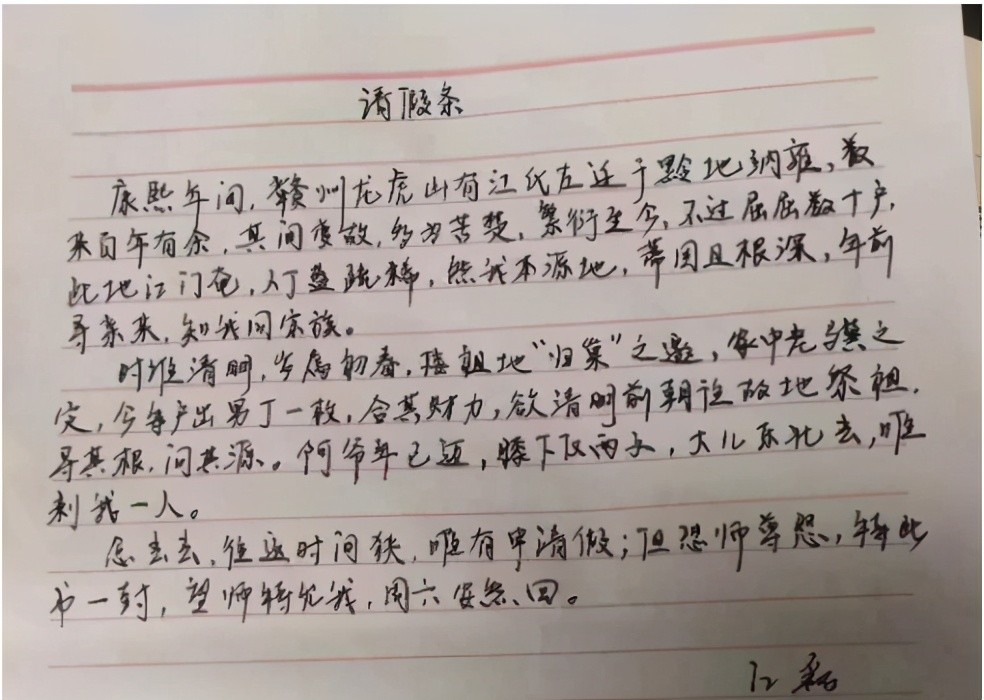 请假条
康熙年间,赣州龙虎山有江氏左迁于黔地纳雍,数
来百年有余,其间变故,多为苦楚,繁衍至今,不过屈屈数十户,
此地江门奄,人丁益疏稀,然我本源地,蒂固且根深,年前
寻亲来,知我同宗族。
时维清明,岁属初春,接祖地“归巢”之邀,家中老
定,今每户出男丁一枚,合其财力,欲清明前朝往故地祭祖,
寻其根,问其源。阿爷年已迈,膝下仅两子,大儿东北去,唯
剩我一人。
念去去,往返时间狭,唯有申请假;但恐师尊怒,特此
书一封,望师特允我,周六安然回。
江磊